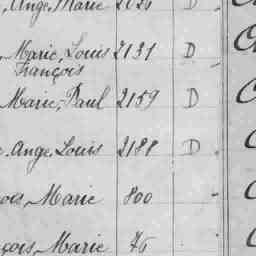 , Ange, Marie 2126 D
, Marie, Louis 2131 D
François
Marie, Paul 2159 D
, Ange, Louis 2188 D
ois, Marie 800
çois, Marie 76